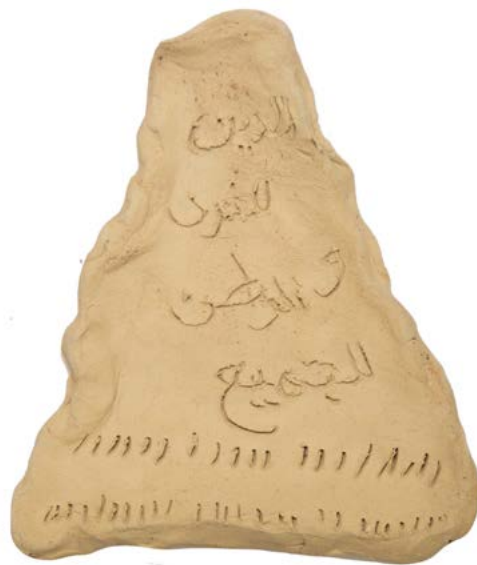 الدين
للفرد
و الوطن
للجميع